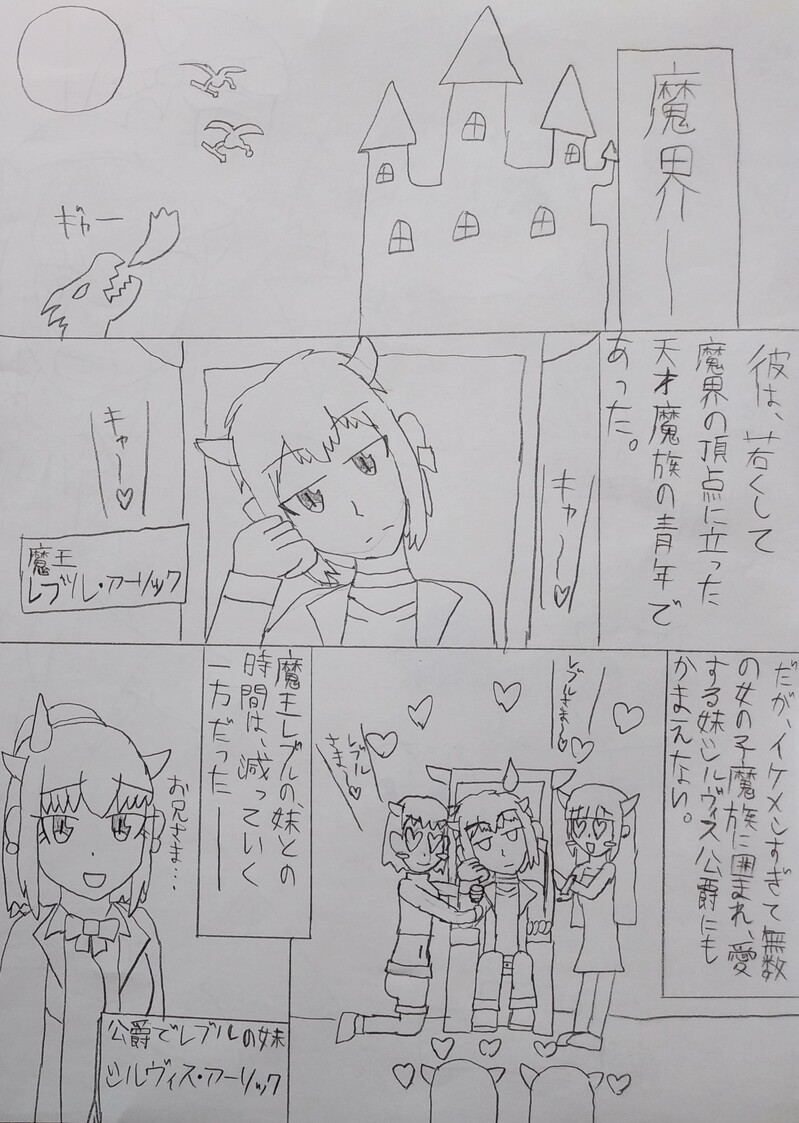 魔界―
ギャー
彼は、若くして
魔界の頂点に立った
天才魔族の青年で
あった。
キャー〜♡
キャー〜♡
魔王
レブル・アーリック
だが、イケメンすぎて無数
の女の子魔族に囲まれ、愛
する妹シルヴィス公爵にも
かまえない。
レブルさま〜♡
レブル
さま〜♡
魔王レブルの、妹との
時間は、減っていく
一方だった―
お兄さま…
公爵でレブルの妹
シルヴィス・アーリック